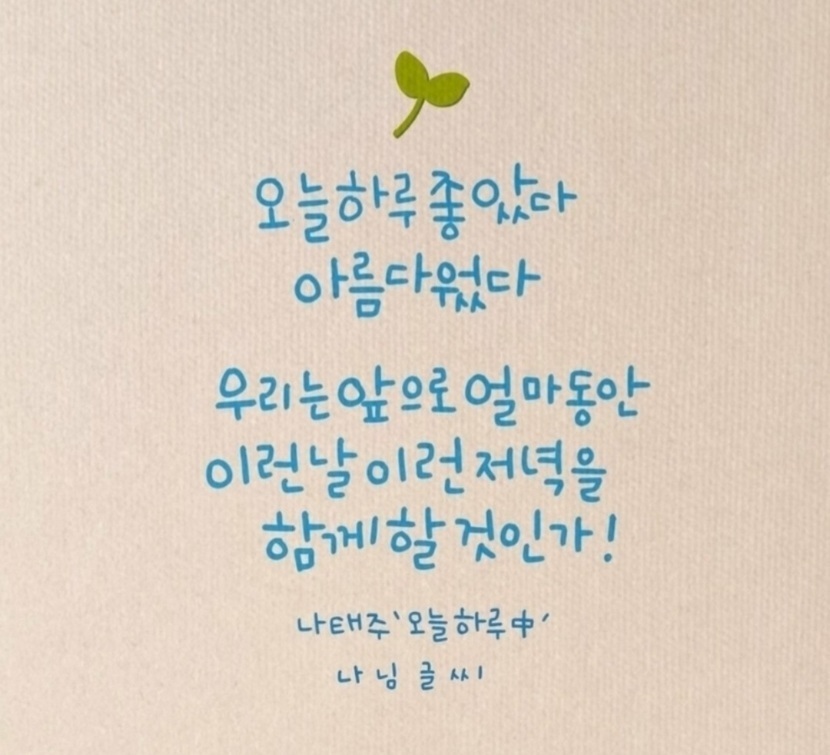 오늘하루 좋았다
아름다웠다
우리는 앞으로 얼마동안
이런날 이런저녁을
함께할 것인가!
나태주 '오늘하루中'
나님 글씨